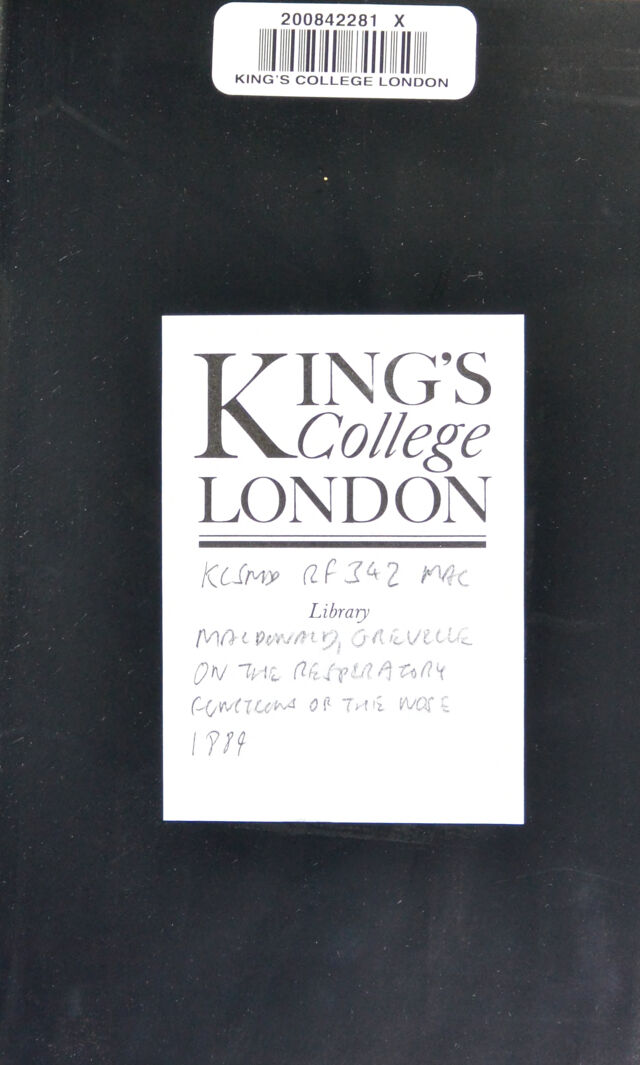 200842281 X
KING'S COLLEGE LONDON
KING'S
College
LONDON
KCSMD RF342 MAC
Library
MACDONALD, GREVILLE
ON THE RESPIRATORY
FUNCTIONS OF THE NOSE
1889